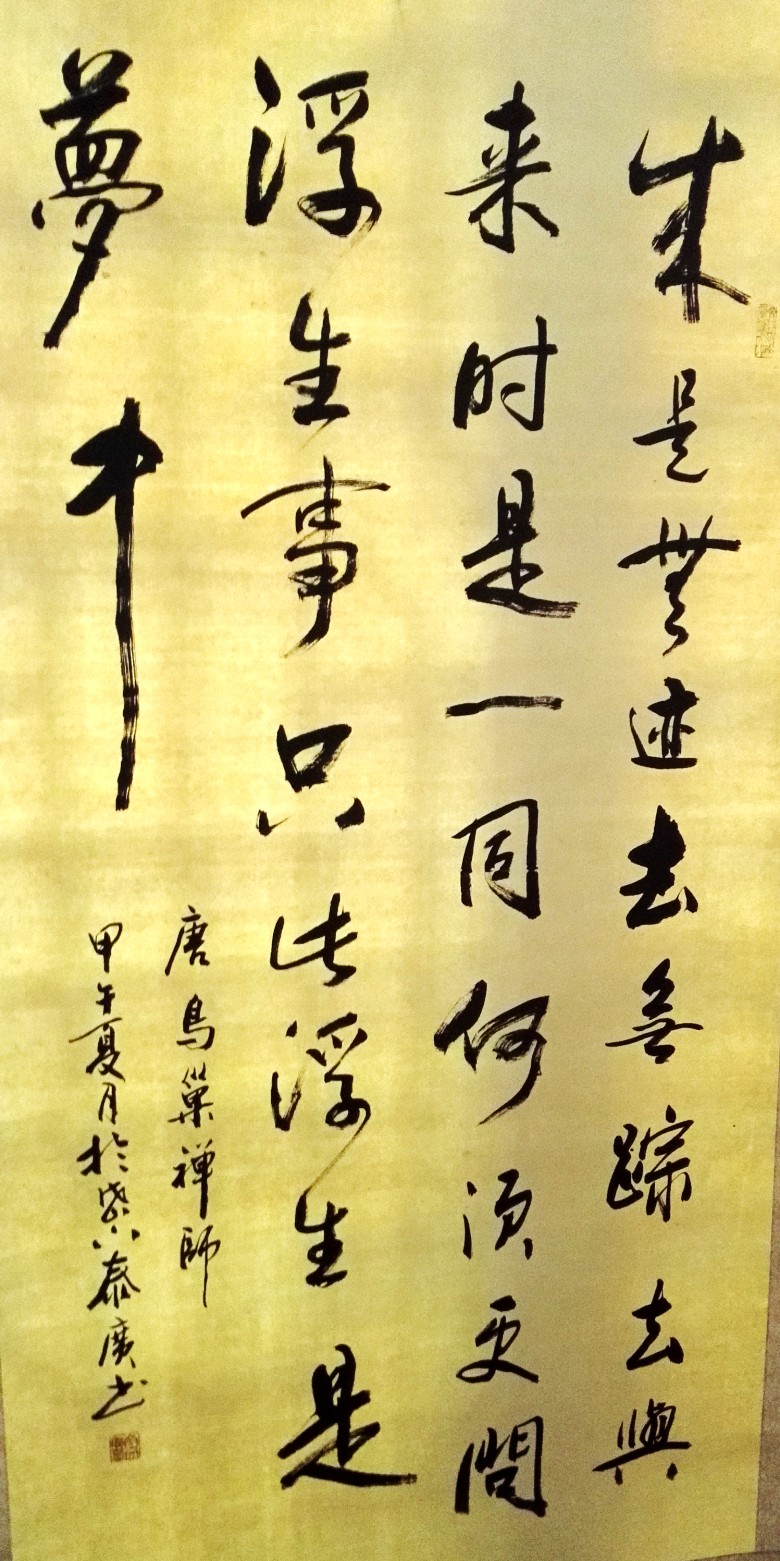 来是無迹去無踪去與
来时是一同何须更問
浮生事只此浮生是
夢中
唐鳥巢禅師
甲午夏月於泰廣书